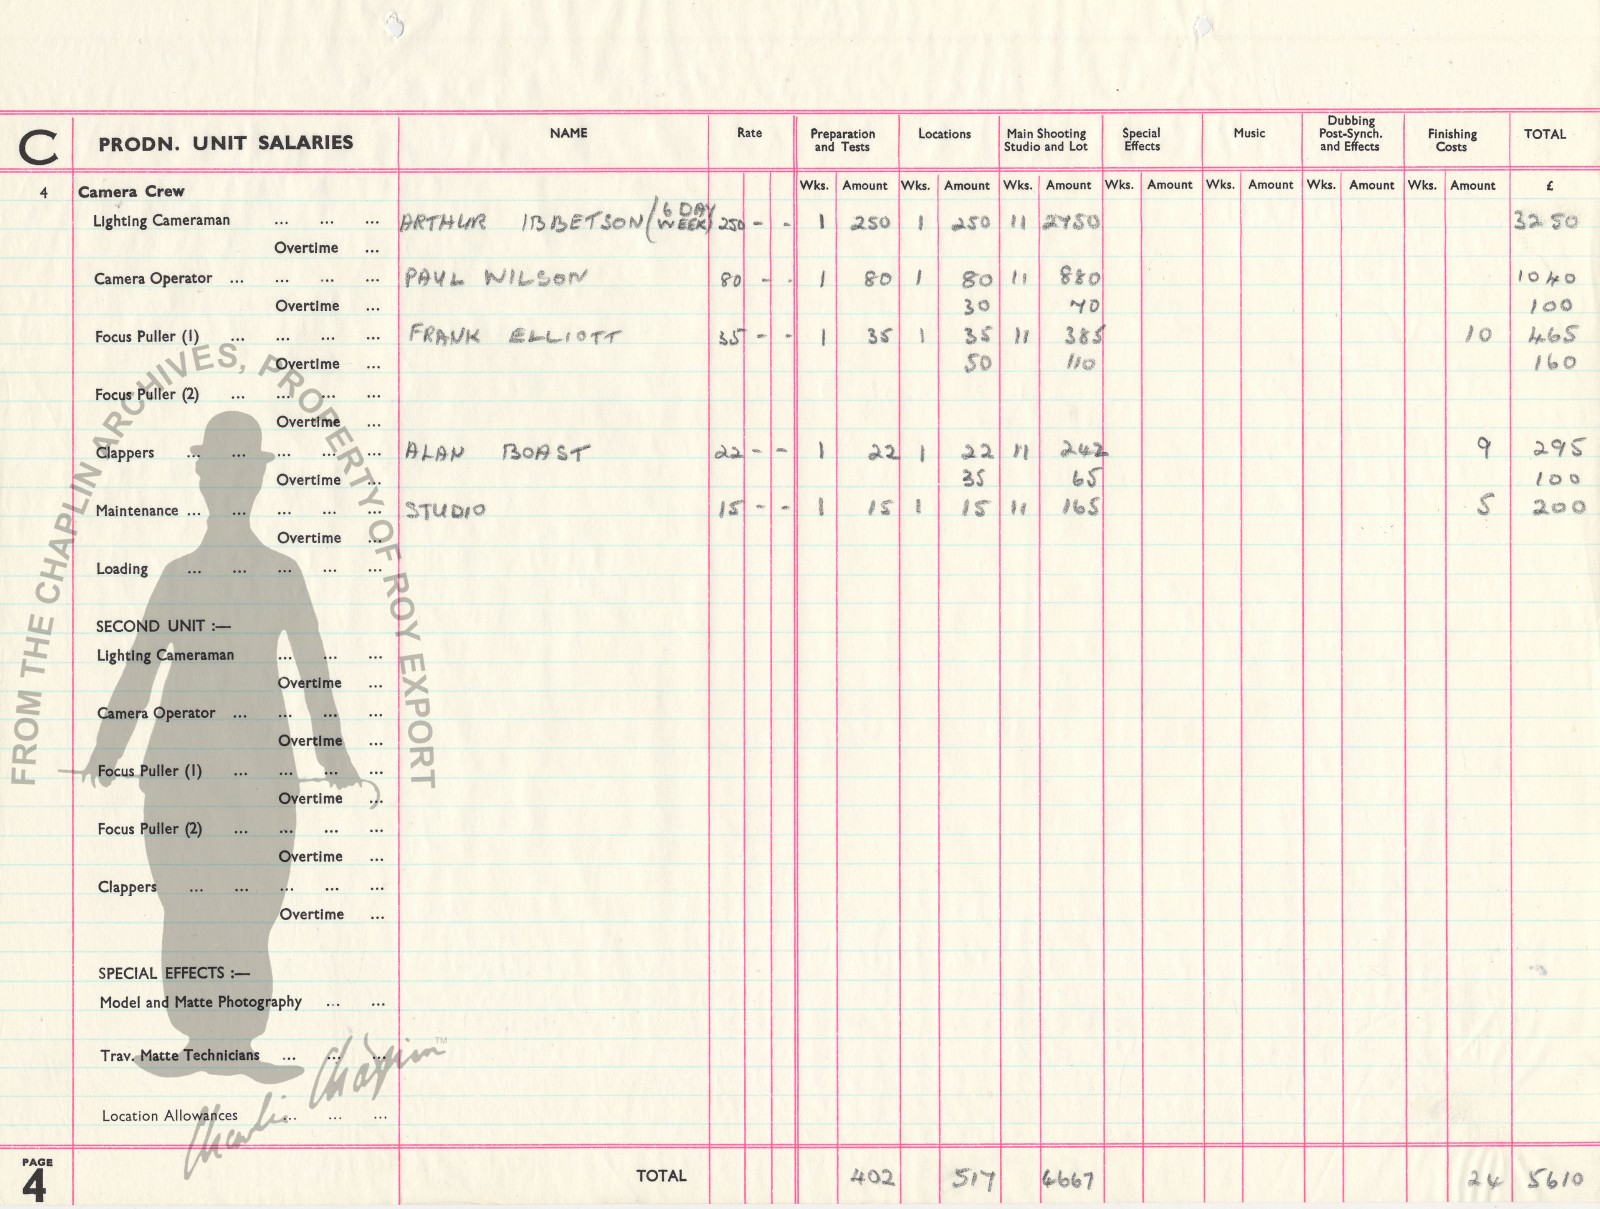 C PRODN. UNIT SALARIES NAME Rate Preparation and Tests Locations Main Shooting Studio and Lot Special Effects Music Dubbing Post-Synch. and Effects Finishing Costs TOTAL
4 Camera Crew Wks. Amount Wks. Amount Wks. Amount Wks. Amount Wks. Amount Wks. Amount Wks. Amount £
Lighting Cameraman ... ... ... ARTHUR IBBETSON (6 DAY WEEK) 250 - - 1 250 1 250 11 2750 3250
Overtime ...
Camera Operator ... ... ... ... PAUL WILSON 80 - - 1 80 1 80 11 880 1040
Overtime ... 30 70 100
Focus Puller (1) ... ... ... ... FRANK ELLIOTT 35 - - 1 35 1 35 11 385 10 465
Overtime ... 50 110 160
Focus Puller (2) ... ... ... ...
Overtime ...
Clappers ... ... ... ... ... ALAN BOAST 22 - - 1 22 1 22 11 242 9 295
Overtime ... 35 65 100
Maintenance ... ... ... ... ... STUDIO 15 - - 1 15 1 15 11 165 5 200
Overtime ...
Loading ... ... ... ... ...
SECOND UNIT :—
Lighting Cameraman ... ... ...
Overtime ...
Camera Operator ... ... ... ...
Overtime ...
Focus Puller (1) ... ... ... ...
Overtime ...
Focus Puller (2) ... ... ... ...
Overtime ...
Clappers ... ... ... ... ...
Overtime ...
SPECIAL EFFECTS :—
Model and Matte Photography ... ...
Trav. Matte Technicians ... ... ...
Location Allowances ... ... ...
PAGE 4 TOTAL 402 517 4667 24 5610
FROM THE CHAPLIN ARCHIVES, PROPERTY OF ROY EXPORT
Charlie Chaplin™